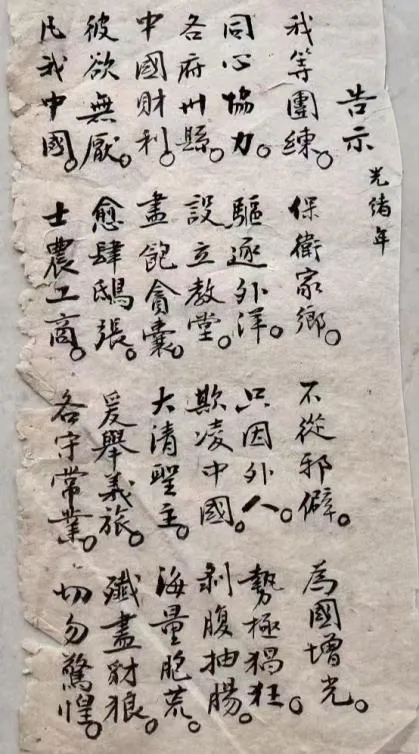 告示 光緒年
我等團練。保衛家鄉。不從邪僻。為國增光。
同心協力。驅逐外洋。只因外人。勢極猖狂。
各府州縣。設立教堂。欺凌中國。剥腹抽腸。
中國財利。盡飽貪囊。大清聖主。海量胞荒。
彼欲無厭。愈肆鴟張。爰舉義旅。殲盡豺狼。
凡我中國。士農工商。各守常業。切勿驚惶。